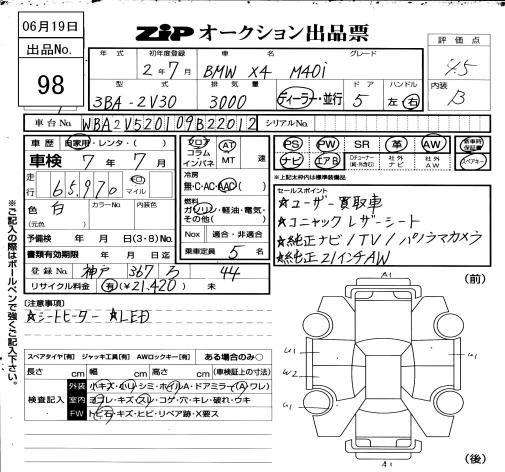 06月19日
ZIP オークション出品票
出品No.
98
年式 初年度登録 車名 グレード
2年7月 BMW X4 M40i
評価点
4.5
型式 排気量 ドア ハンドル
3BA-2V30 3000 ディーラー・並行 5 左 右
内装
B
車台No. WBA2V520109B22012 シリアルNo.
車歴 自家用・レンタ・( )
車検 7年7月
走行 65,970 キロ マイル
色 白 カラーNo. 内装色
(元色)
予備検 年 月 日(3・8)No.
書類有効期限 年 月 日迄
登録No. 神戸 367 ろ 44
リサイクル料金 有(¥21,420) 未
フロア コラム インパネ AT MT 速
冷房
無・C・AC・AAC( )
燃料
ガソリン・軽油・電気・その他( )
Nox 適合・非適合
乗車定員 5 名
PS PW SR 革 AW 新車時保証書
ナビ エアB Dチューナー(純・外含む) 社外ナビ 社外AW スペアキー
※上記太わく内は標準装備品
セールスポイント
☆ユーザー買取車
☆コニャックレザーシート
☆純正ナビ/TV/パノラマカメラ
☆純正21インチAW
(注意事項)
☆シートヒーター ☆LED
※ご記入の際はボールペンで強くご記入下さい。
スペアタイヤ[有] ジャッキ工具[有] AWロックキー[有] ある場合のみ○
長さ cm 幅 cm 高さ cm (車検証上の寸法)
検査記入
外装 小キズ・凹・シミ・ホイルA・ドアミラー(A・ワレ)
室内 ヨゴレ・キズ・スレ・コゲ・穴・キレ・破れ・ウキ
FW トビ石・キズ・ヒビ・リペア跡・X要ス
(前)
A1
U1
W2
U1
U1
A1
(後)